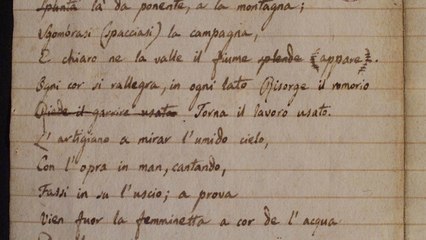 Spunta là da ponente, a la montagna;
Sgombrasi (spacciasi) la campagna,
E chiaro ne la valle il fiume splende (appare).
Ogni cor si rallegra, in ogni lato Risorge il romorio
Riede il garrire usato. Torna il lavoro usato.
L'artigiano a mirar l'umido cielo,
Con l'opra in man, cantando,
Fassi in su l'uscio; a prova
Vien fuor la femminetta a cor de l'acqua